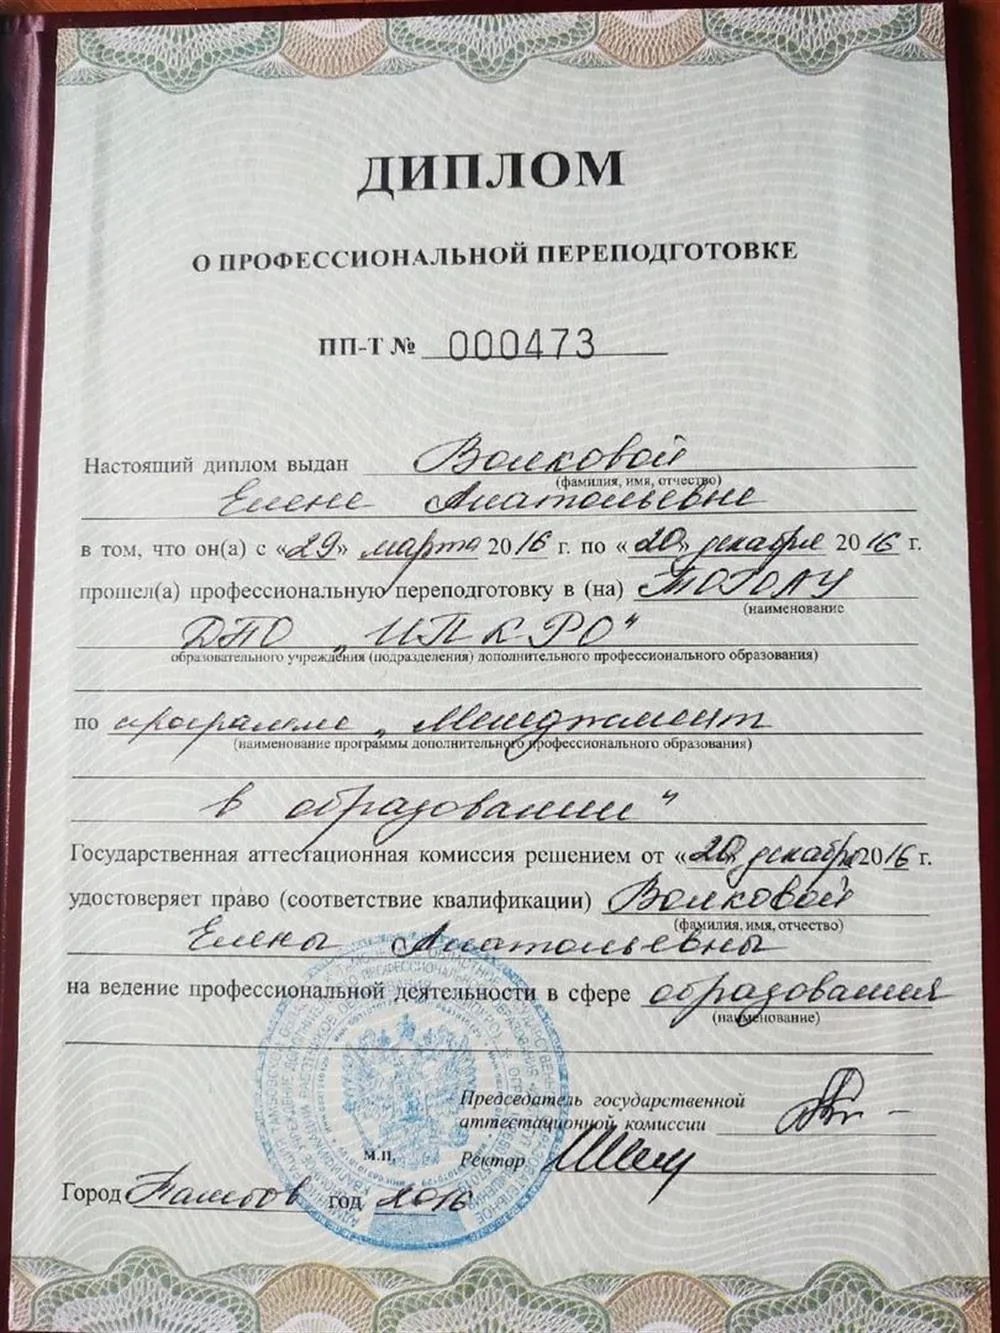 ДИПЛОМ
О ПРОФЕССИОНАЛЬНОЙ ПЕРЕПОДГОТОВКЕ
ПП-Т № 000473
Настоящий диплом выдан Волковой
(фамилия, имя, отчество)
Елене Анатольевне
в том, что он(а) с «29» марта 2016 г. по «20» декабря 2016 г.
прошел(а) профессиональную переподготовку в (на) ТОГОАУ
(наименование
ДПО „ИПКРО“
образовательного учреждения (подразделения) дополнительного профессионального образования)
по программе „Менеджмент
(наименование программы дополнительного профессионального образования)
в образовании“
Государственная аттестационная комиссия решением от «20» декабря 2016 г.
удостоверяет право (соответствие квалификации) Волковой
(фамилия, имя, отчество)
Елены Анатольевны
на ведение профессиональной деятельности в сфере образования
(наименование)
Председатель государственной
аттестационной комиссии
М.П.
Ректор
Город Тамбов год 2016